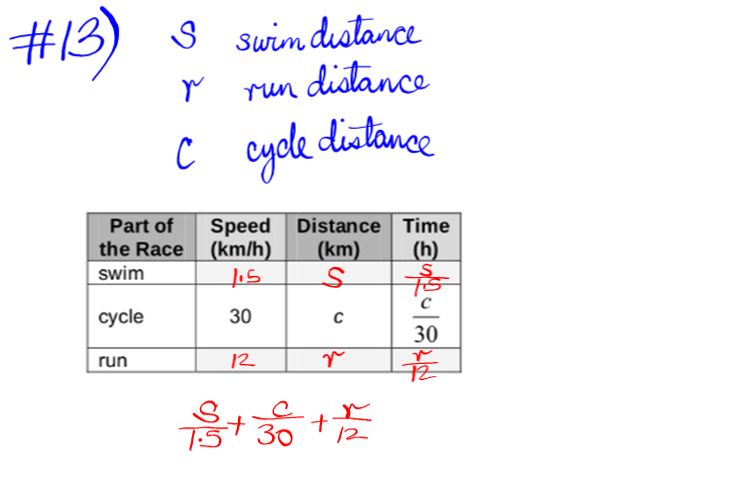 #13) S swim distance
r run distance
c cycle distance
Part of the Race Speed (km/h) Distance (km) Time (h)
swim 1.5 S S/1.5
cycle 30 c c/30
run 12 r r/12
S/1.5 + c/30 + r/12